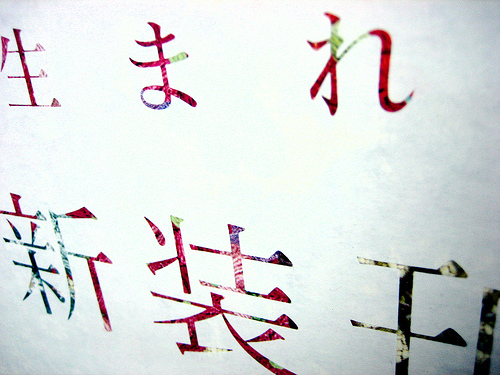 生まれ
新装刊